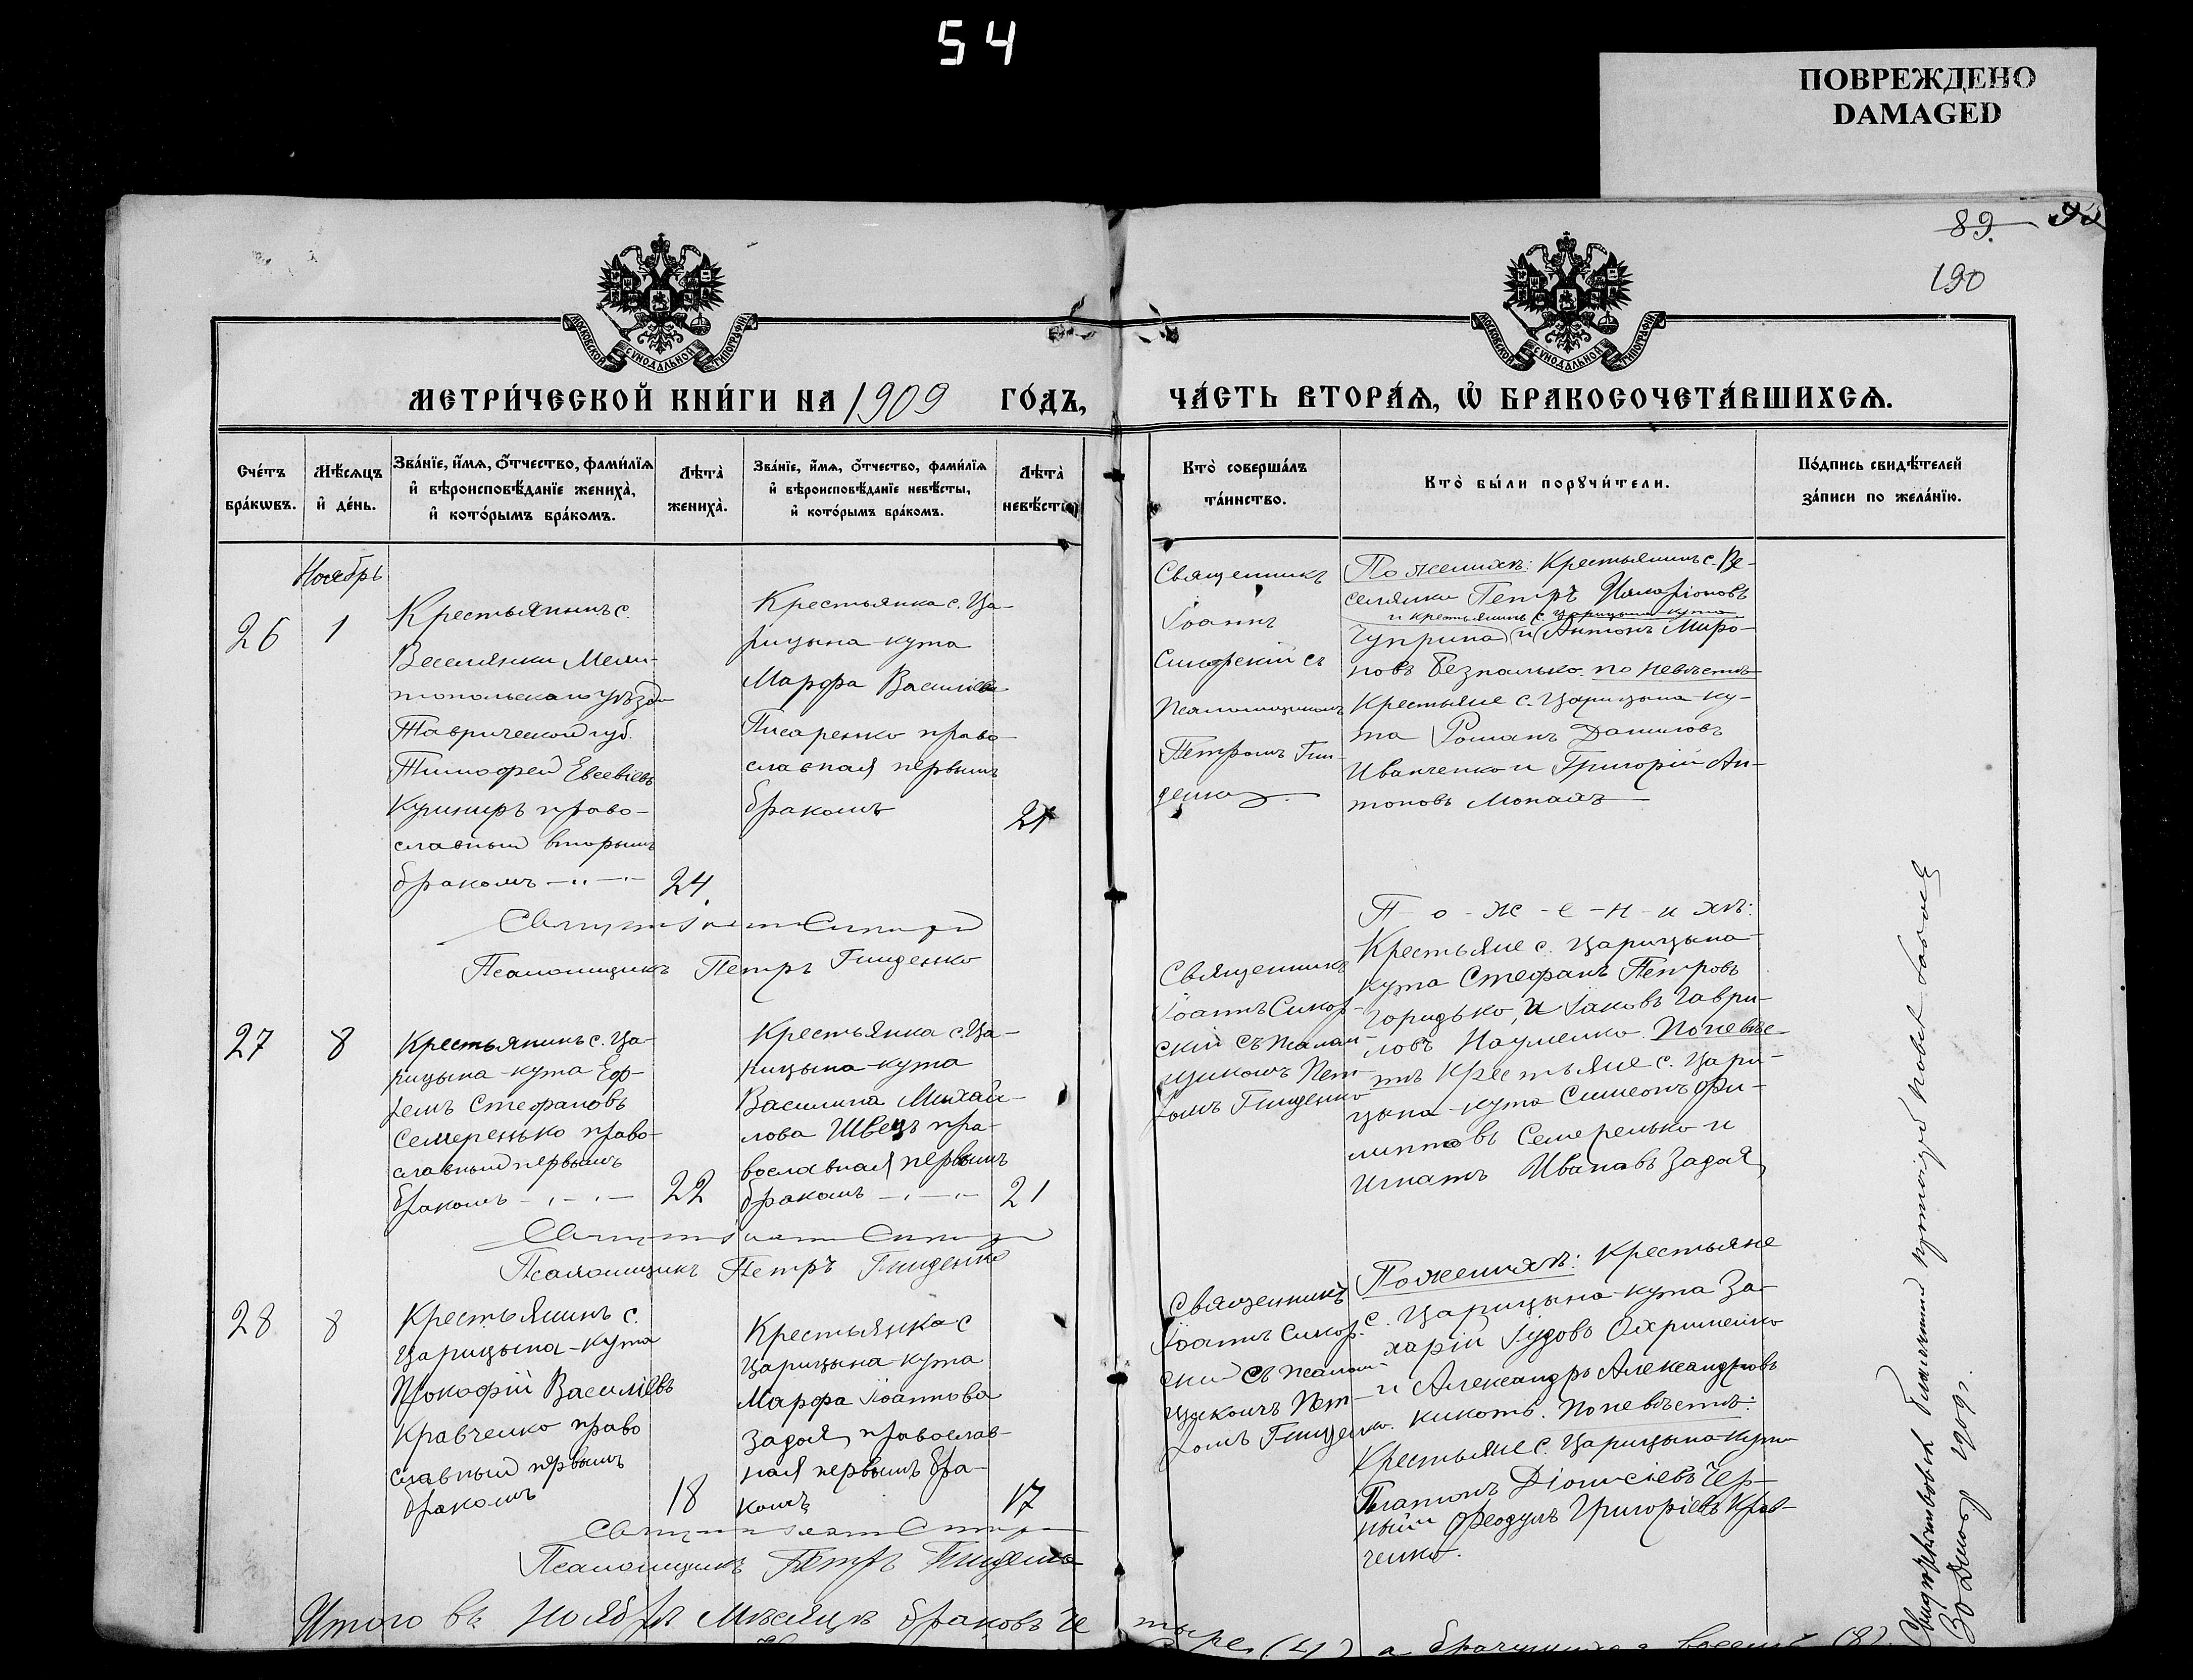 54
ПОВРЕЖДЕНО
DAMAGED
89.
190
МОСКОВСКОЙ СѴНОДАЛЬНОЙ ТИПОГРАФІИ
МОСКОВСКОЙ СѴНОДАЛЬНОЙ ТИПОГРАФІИ
МЕТРИ́ЧЕСКОЙ КНИ́ГИ НА 1909 ГО́ДЪ,
ЧА́СТЬ ВТОРА́Ѧ, Ѽ БРАКОСОЧЕТА́ВШИХСѦ.
Сче́тъ
бра́кѡвъ.
Мѣ́сѧцъ
и҆ де́нь.
Зва́нїе, и҆́мѧ, ѻ҆́тчество, фами́лїѧ
и҆ вѣроисповѣ́данїе жениха̀,
и҆ кото́рымъ бра́комъ.
Лѣта̀
жениха̀.
Зва́нїе, и҆́мѧ, ѻ҆́тчество, фами́лїѧ
и҆ вѣроисповѣ́данїе невѣ́сты,
и҆ кото́рымъ бра́комъ.
Лѣта̀
невѣ́сты.
Кто̀ соверша́лъ
та́инство.
Кто̀ бы́ли порꙋчи́тели.
По́дпись свидѣ́телей
за́писи по жела́нїю.
Ноябрь
26
1
Крестьянинъ с.
Веселянки Мели-
топольскаго уѣзда
Таврической губ.
Тимофей Евсевіевъ
Кушниръ право-
славный вторымъ
бракомъ
24.
Крестьянка с. Ца-
рицына-кута
Марфа Василіева
Писаренко право-
славная первымъ
бракомъ
21
Священникъ
Іоаннъ
Сикорскій съ
псаломщикомъ
Петромъ Гни-
денко
По женихѣ: Крестьянинъ с. Ве-
селянки Петръ Иларіоновъ
и крестьянинъ с. Царицына кута
Чуприна и Антонъ Миро-
новъ Безпалько. по невѣстѣ
Крестьяне с. Царицына-ку-
та Романъ Даниловъ
Иванченко и Григорій Ан-
тоновъ Монахъ
Псаломщикъ Петръ Гниденко
27
8
Крестьянинъ с. Ца-
рицына-кута Еф-
ремъ Стефановъ
Семеренько право-
славный первымъ
бракомъ
22
Крестьянка с. Ца-
рицына-кута
Василина Михай-
лова Швецъ пра-
вославная первымъ
бракомъ
21
Священникъ
Іоаннъ Сикор-
скій съ псалом-
щикомъ Пет-
ромъ Гниденко
П-о-ж-е-н-и-хѣ:
Крестьяне с. Царицына-
кута Стефанъ Петровъ
Горидько, и Іаковъ Гаври-
ловъ Науменко. По невѣс-
тѣ Крестьяне с. Цари-
цына-кута Симеонъ Фи-
липповъ Семеренько и
Игнатъ Ивановъ Задоя
Псаломщикъ Петръ Гниденко
28
8
Крестьянинъ с.
Царицына-кута
Прокофій Василіевъ
Кравченко право
славный первымъ
бракомъ
18
Крестьянка с
Царицына-кута
Марфа Іоаннова
Задоя православ-
ная первымъ бра-
комъ
17
Священникъ
Іоаннъ Сикор-
скій съ псалом-
щикомъ Пет-
ромъ Гниденко.
По женихѣ: Крестьяне
с. Царицына-кута За-
харій Іудовъ Охрименко
и Александръ Александровъ
Кикоть. По невѣстѣ:
Крестьяне с. Царицына-кута
Платонъ Діонисіевъ Чер-
ный и Феодулъ Григоріевъ Крав-
ченко.
Псаломщикъ Петръ Гниденко
Итого въ Ноябрѣ мѣсяцѣ браковъ че
тыре (4) а брачущихся восемь (8).
1909 г.